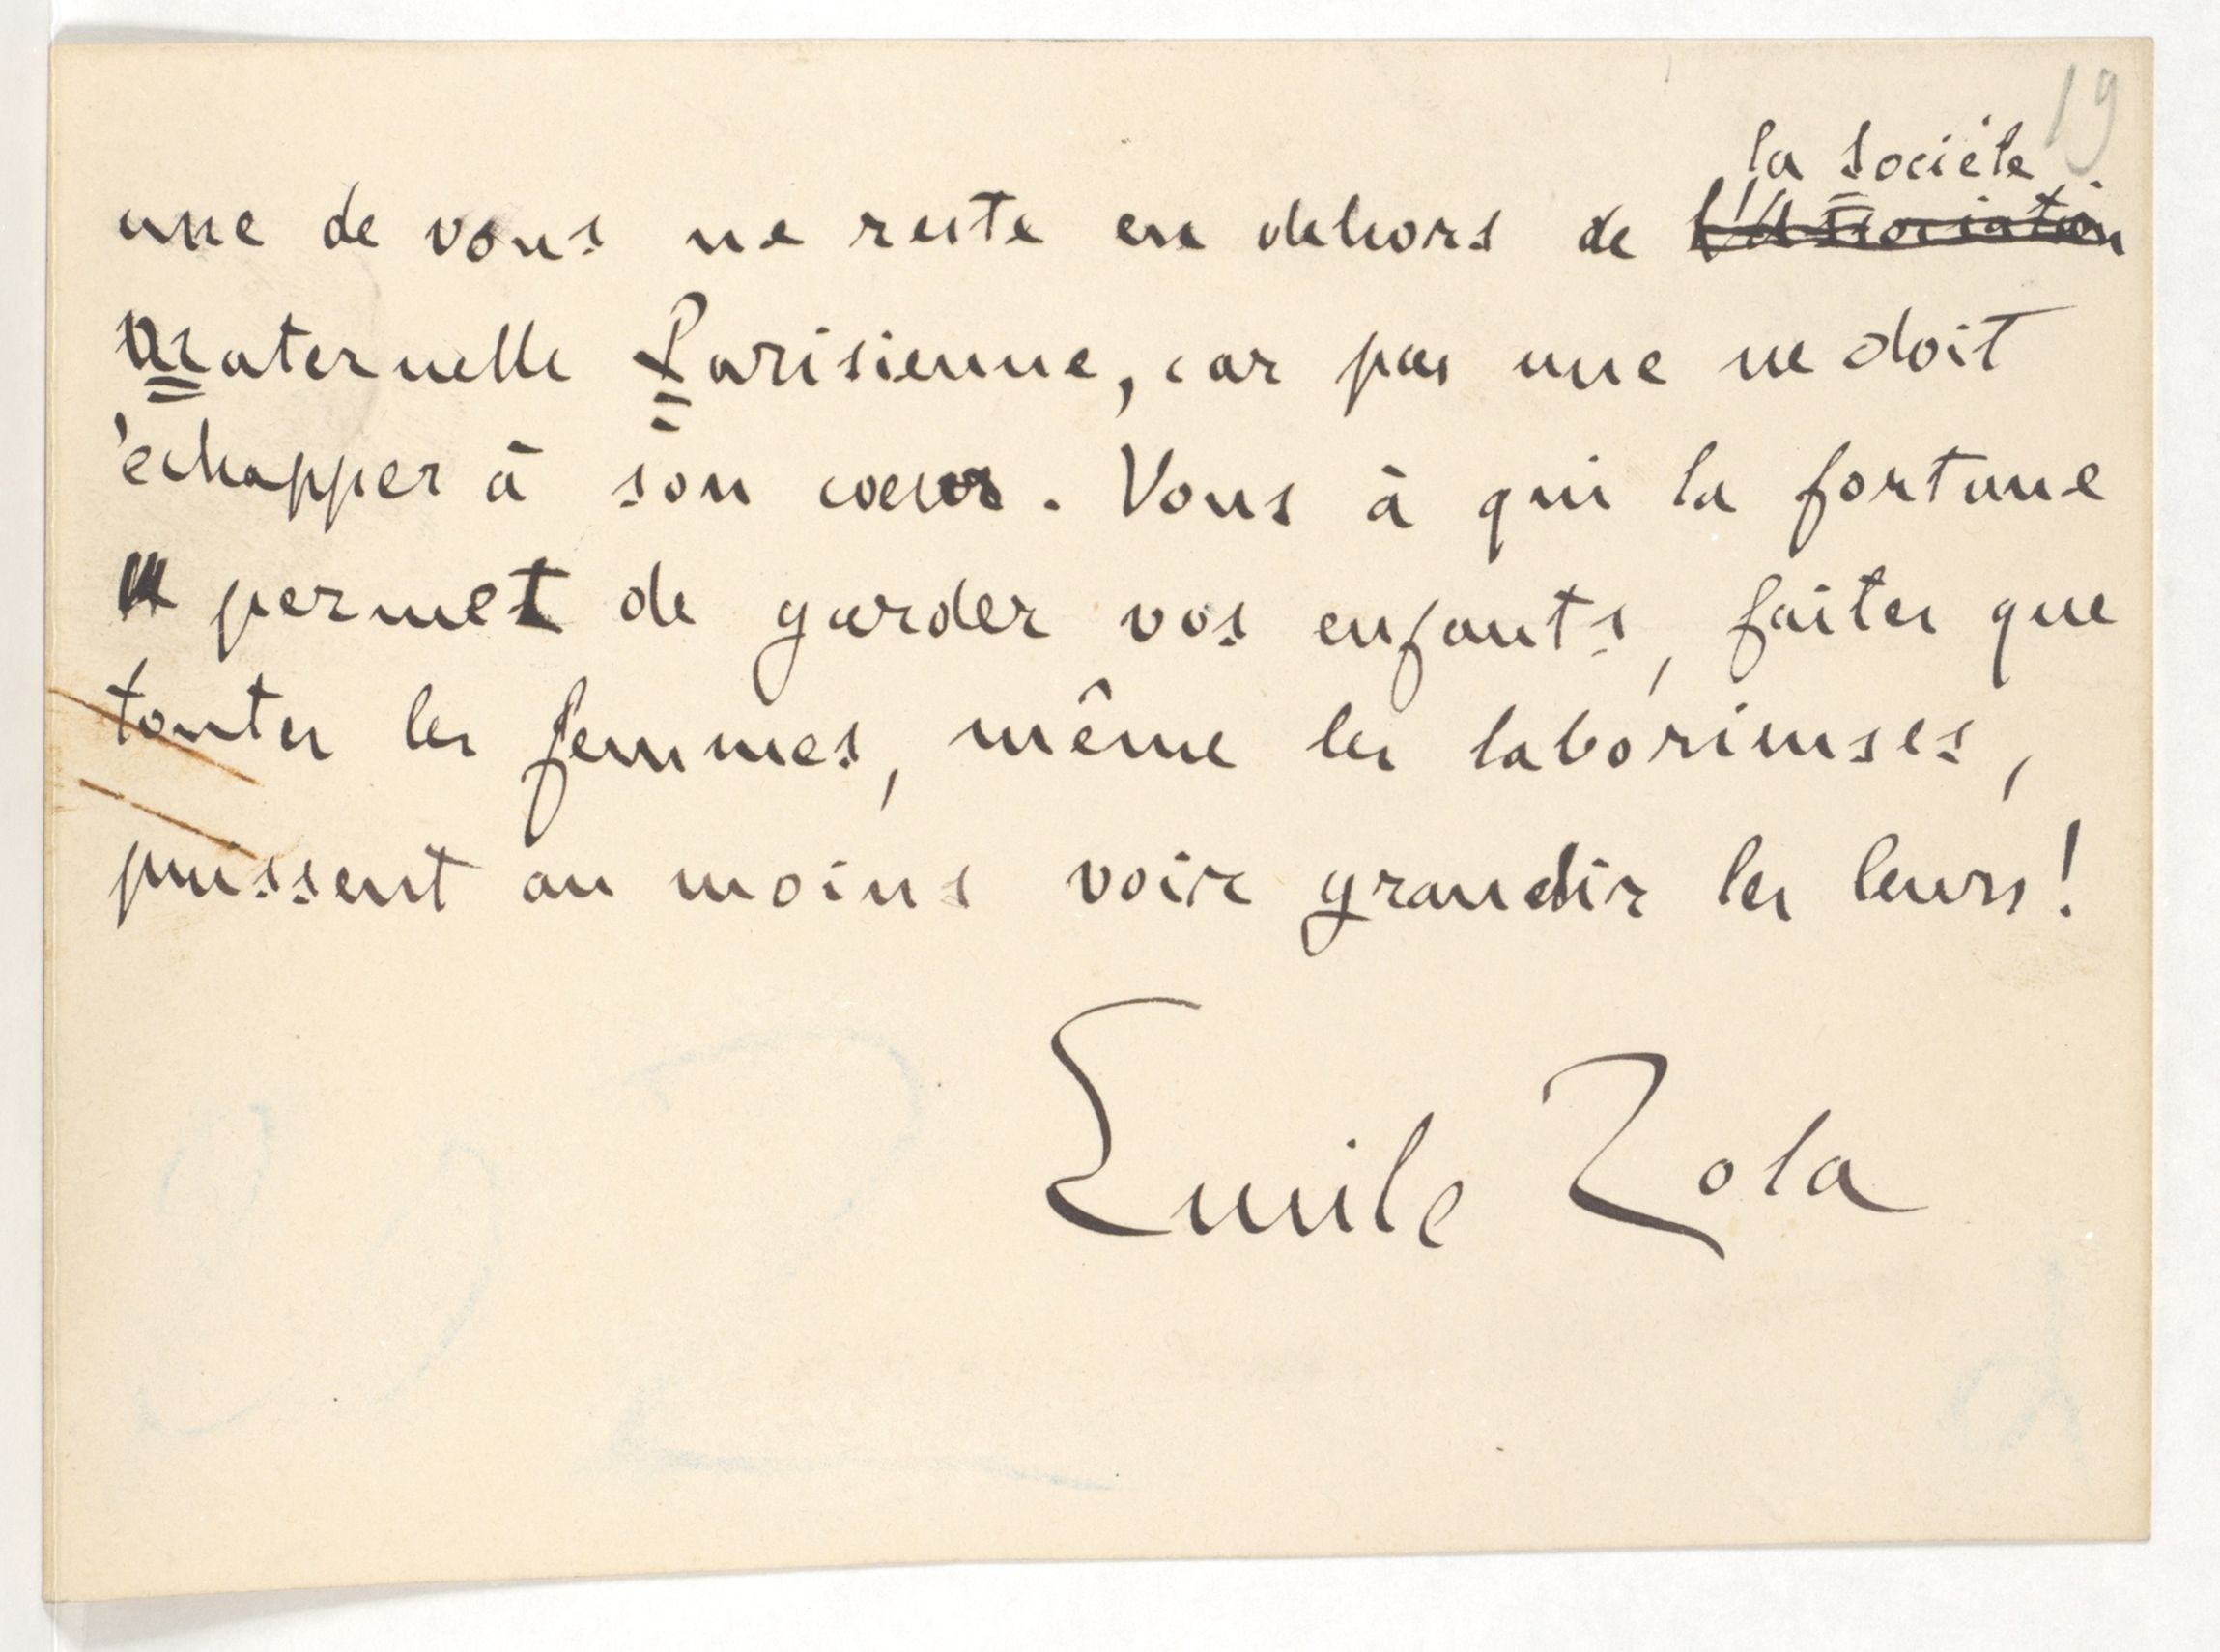 19
la Société
une de vous ne reste en dehors de l'Association
Maternelle Parisienne, car pas une ne doit
échapper à son coeur. Vous à qui la fortune
permet de garder vos enfants, faites que
toutes les femmes, même les laborieuses,
puissent au moins voir grandir les leurs!
Emile Zola